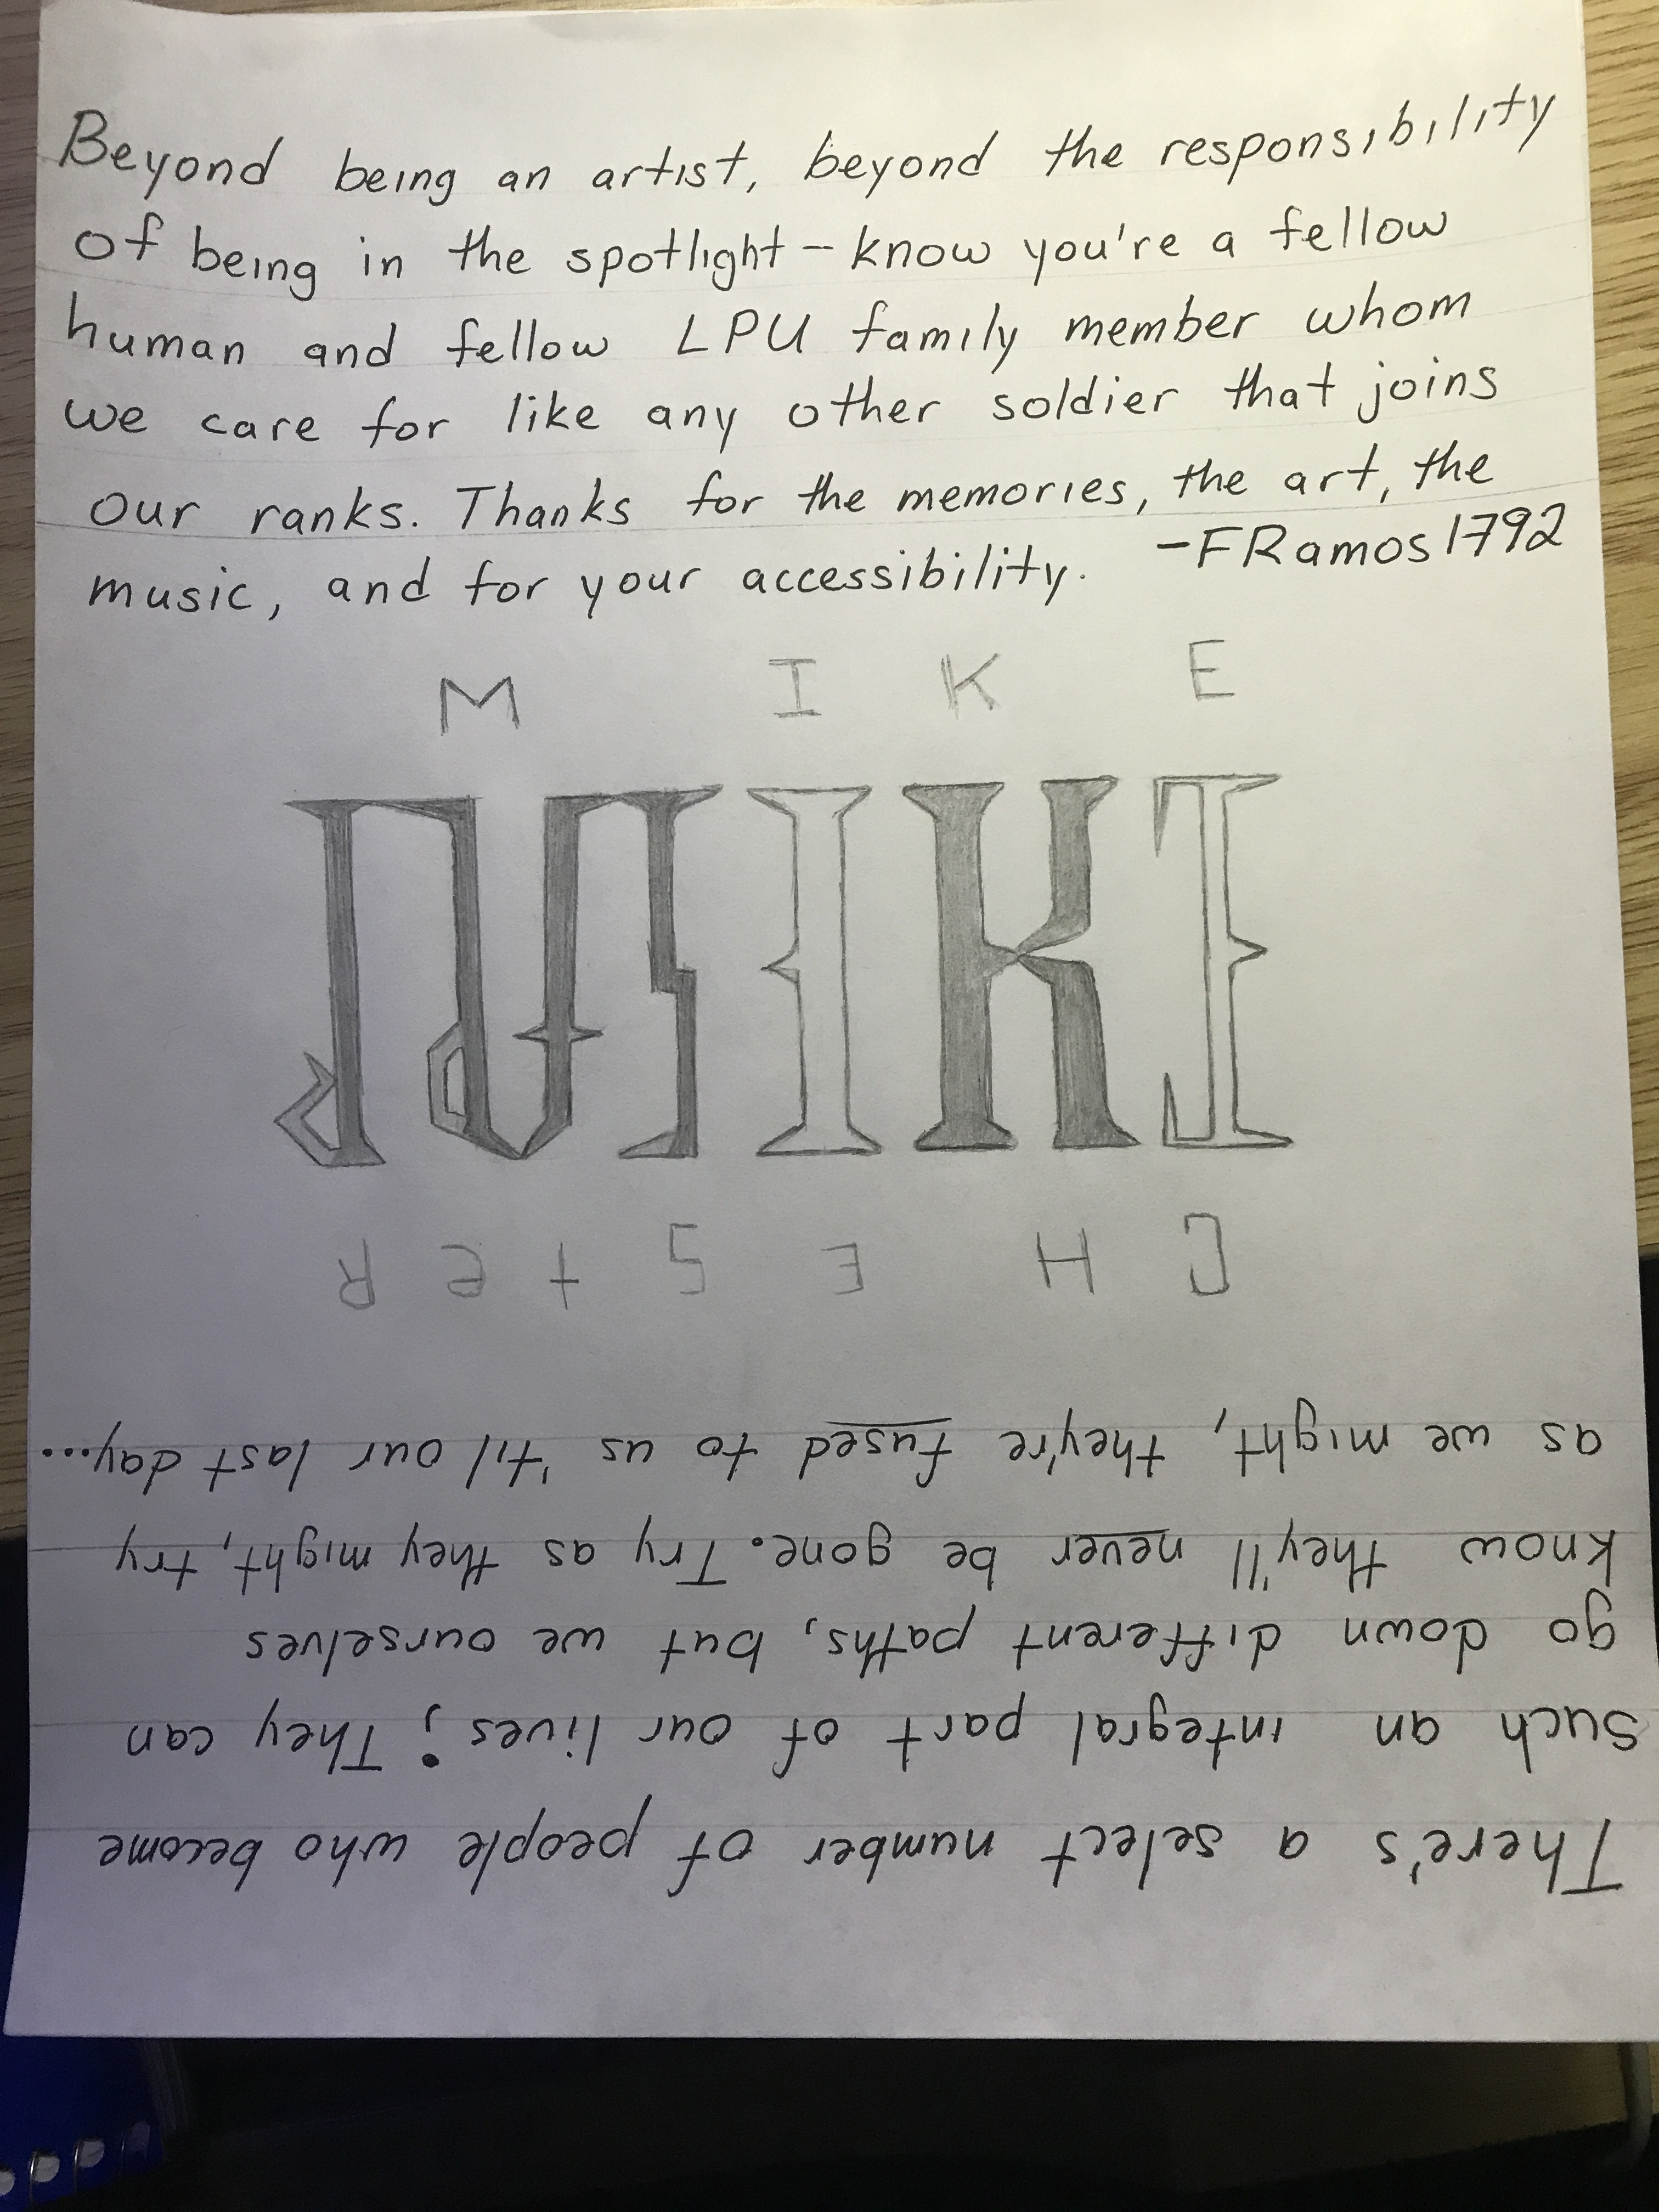 Beyond being an artist, beyond the responsibility
of being in the spotlight – know you're a fellow
human and fellow LPU family member whom
we care for like any other soldier that joins
our ranks. Thanks for the memories, the art, the
music, and for your accessibility. -FRamos1792
M I K E
MIKE
CHESteR
There's a select number of people who become
such an integral part of our lives; They can
go down different paths, but we ourselves
know they'll never be gone. Try as they might, try
as we might, they're fused to us 'til our last day...